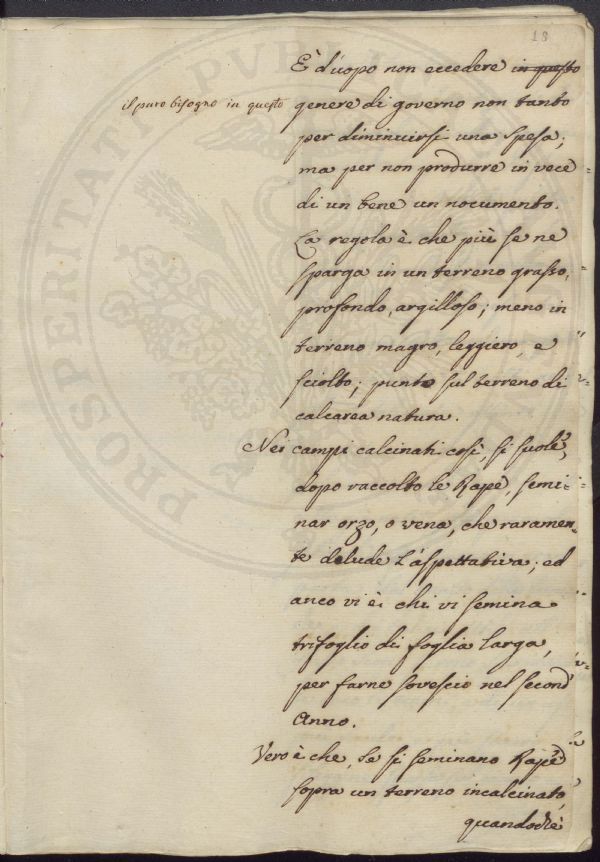 18
È d'uopo non eccedere in questo
il puro bisogno in questo
genere di governo non tanto
per diminuirsi una spesa;
ma per non produrre in vece
di un bene un nocumento.
La regola è che più se ne
sparga in un terreno grasso,
profondo, argilloso; meno in
terreno magro, leggiero, e
sciolto; punto sul terreno di
calcarea natura.
Nei campi calcinati così, si suole,
dopo raccolto le Rape, semi-
nar orzo, o vena, che raramen-
te delude l'aspettativa; ed
anco vi è chi vi semina
trifoglio di foglia larga,
per farne sovescio nel second
Anno.
Vero è che, se si seminano Rape
sopra un terreno incalcinato,
quandochè
PROSPERITATI PUBLI